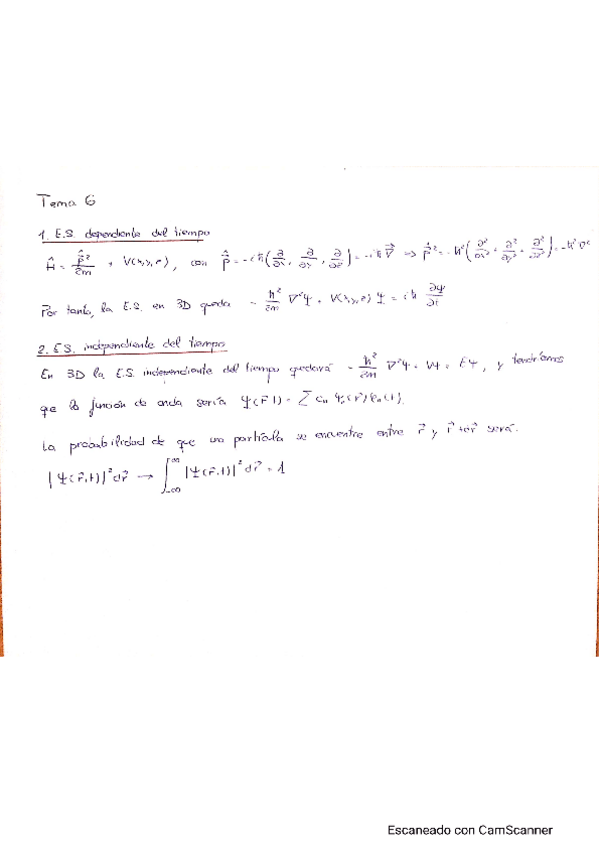 Tema 6
1. E.S. dependiente del tiempo
Ĥ = p̂²/2m + V(x,y,z), con p̂ = -iħ(∂/∂x, ∂/∂y, ∂/∂z) = -iħ∇⃗ ⇒ p̂² = -ħ²(∂²/∂x² + ∂²/∂y² + ∂²/∂z²) = -ħ²∇²
Por tanto, la E.S. en 3D queda - ħ²/2m ∇²Ψ + V(x,y,z)Ψ = iħ ∂Ψ/∂t
2. E.S. independiente del tiempo
En 3D la E.S. independiente del tiempo quedará - ħ²/2m ∇²Ψ + VΨ = EΨ, y tendríamos
que la función de onda sería Ψ(r⃗,t) = Σ Cn Ψn(r⃗)φn(t).
La probabilidad de que una partícula se encuentre entre r⃗ y r⃗+dr⃗ será:
|Ψ(r⃗,t)|²dr⃗ → ∫_{-∞}^{+∞} |Ψ(r⃗,t)|² dr⃗ = 1
Escaneado con CamScanner